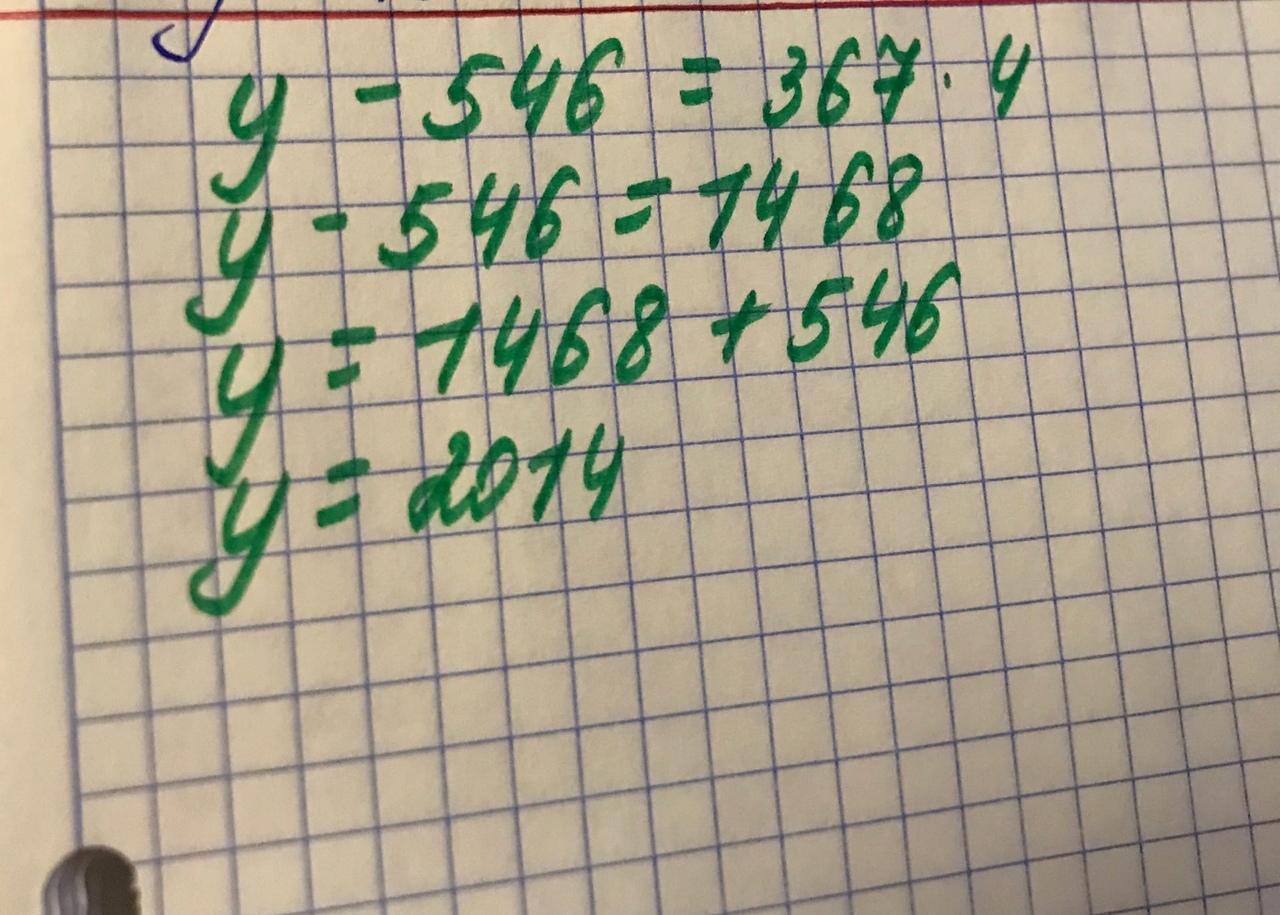 y - 546 = 367 · 4
y - 546 = 1468
y = 1468 + 546
y = 2014